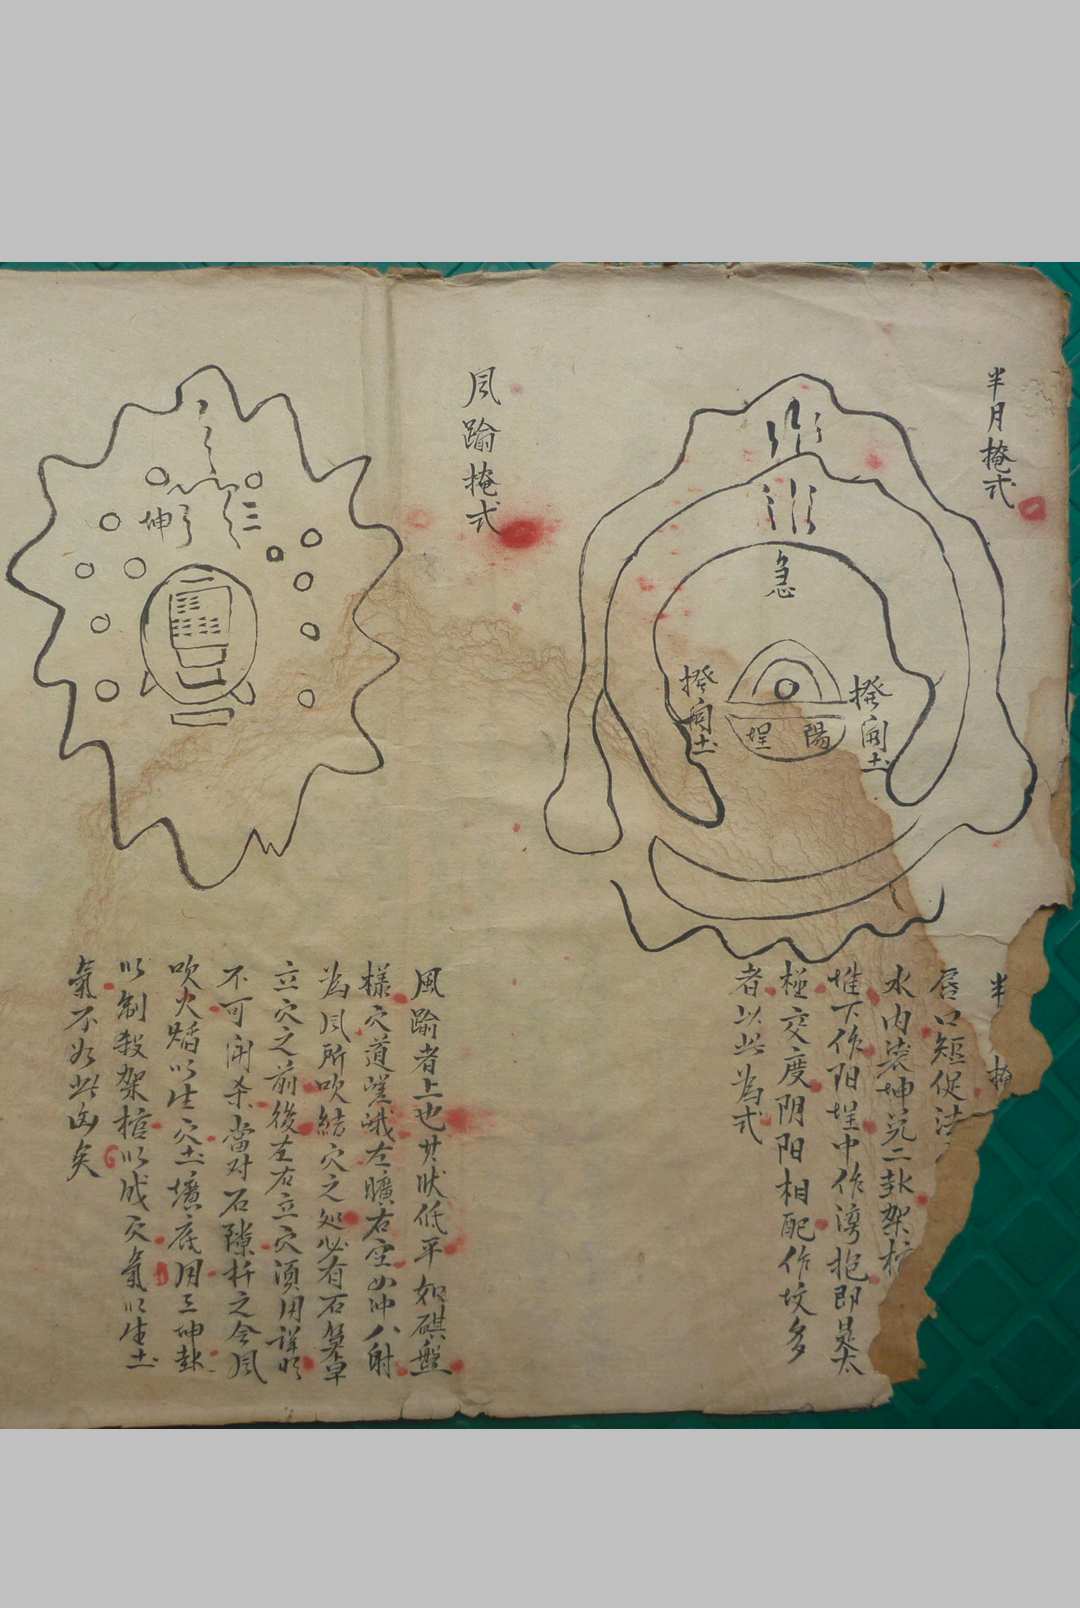 半月掩式
急
撥開土
撥開土
埕 陽
半
唇口短促法
水内裝坤兑二卦架棺
堆下作阳埕中作湾抱即是太
極交度阴阳相配作坟多
者以此为式
風踰掩式
坤
三
風踰者上也其狀低平如碁盤
樣穴道嵯峨左曠右空凹冲八射
為風所吹結穴之处必有石
立穴之前後左右立穴須用詳明
不可闭杀當对石隙扦之令風
吹火熖以生穴土壙底用三坤卦
以制殺架棺以成穴氣以生土
氣不如此凶矣